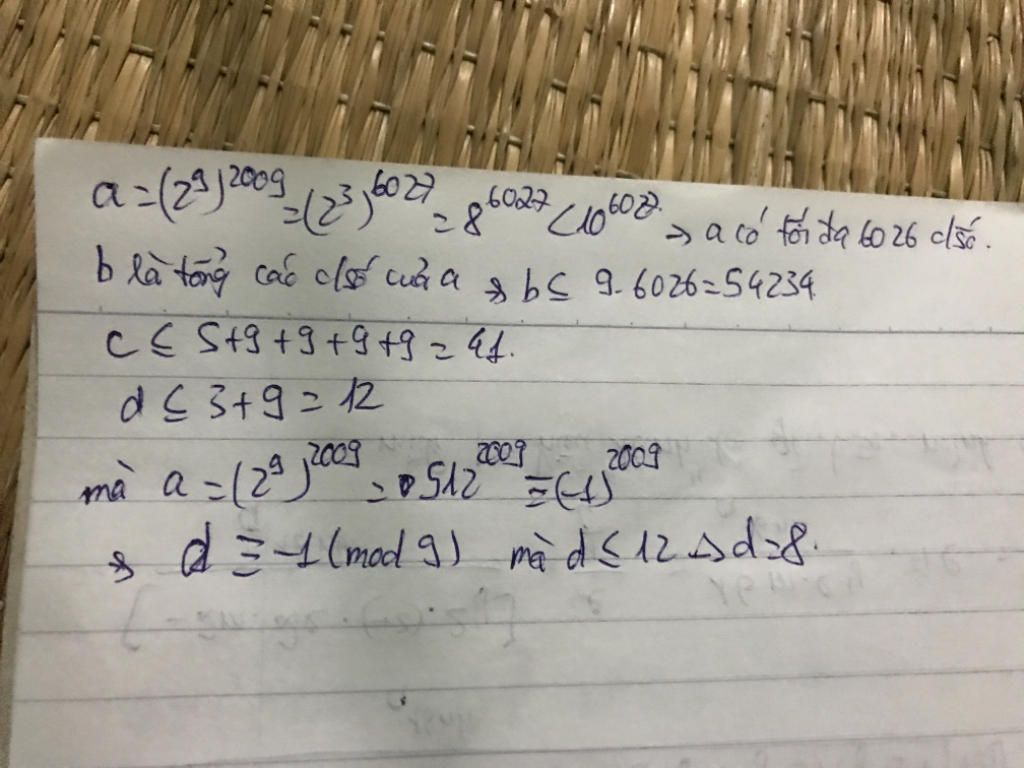 a = (2^9)^2009 = (2^3)^6027 = 8^6027 < 10^6027 → a có tối đa 6026 c/số.
b là tổng các c/số của a → b ≤ 9.6026 = 54234
c ≤ 5+9+9+9+9 = 41.
d ≤ 3+9 = 12
mà a = (2^9)^2009 = 512^2009 ≡ (-1)^2009
→ d ≡ -1 (mod 9) mà d ≤ 12 → d = 8.